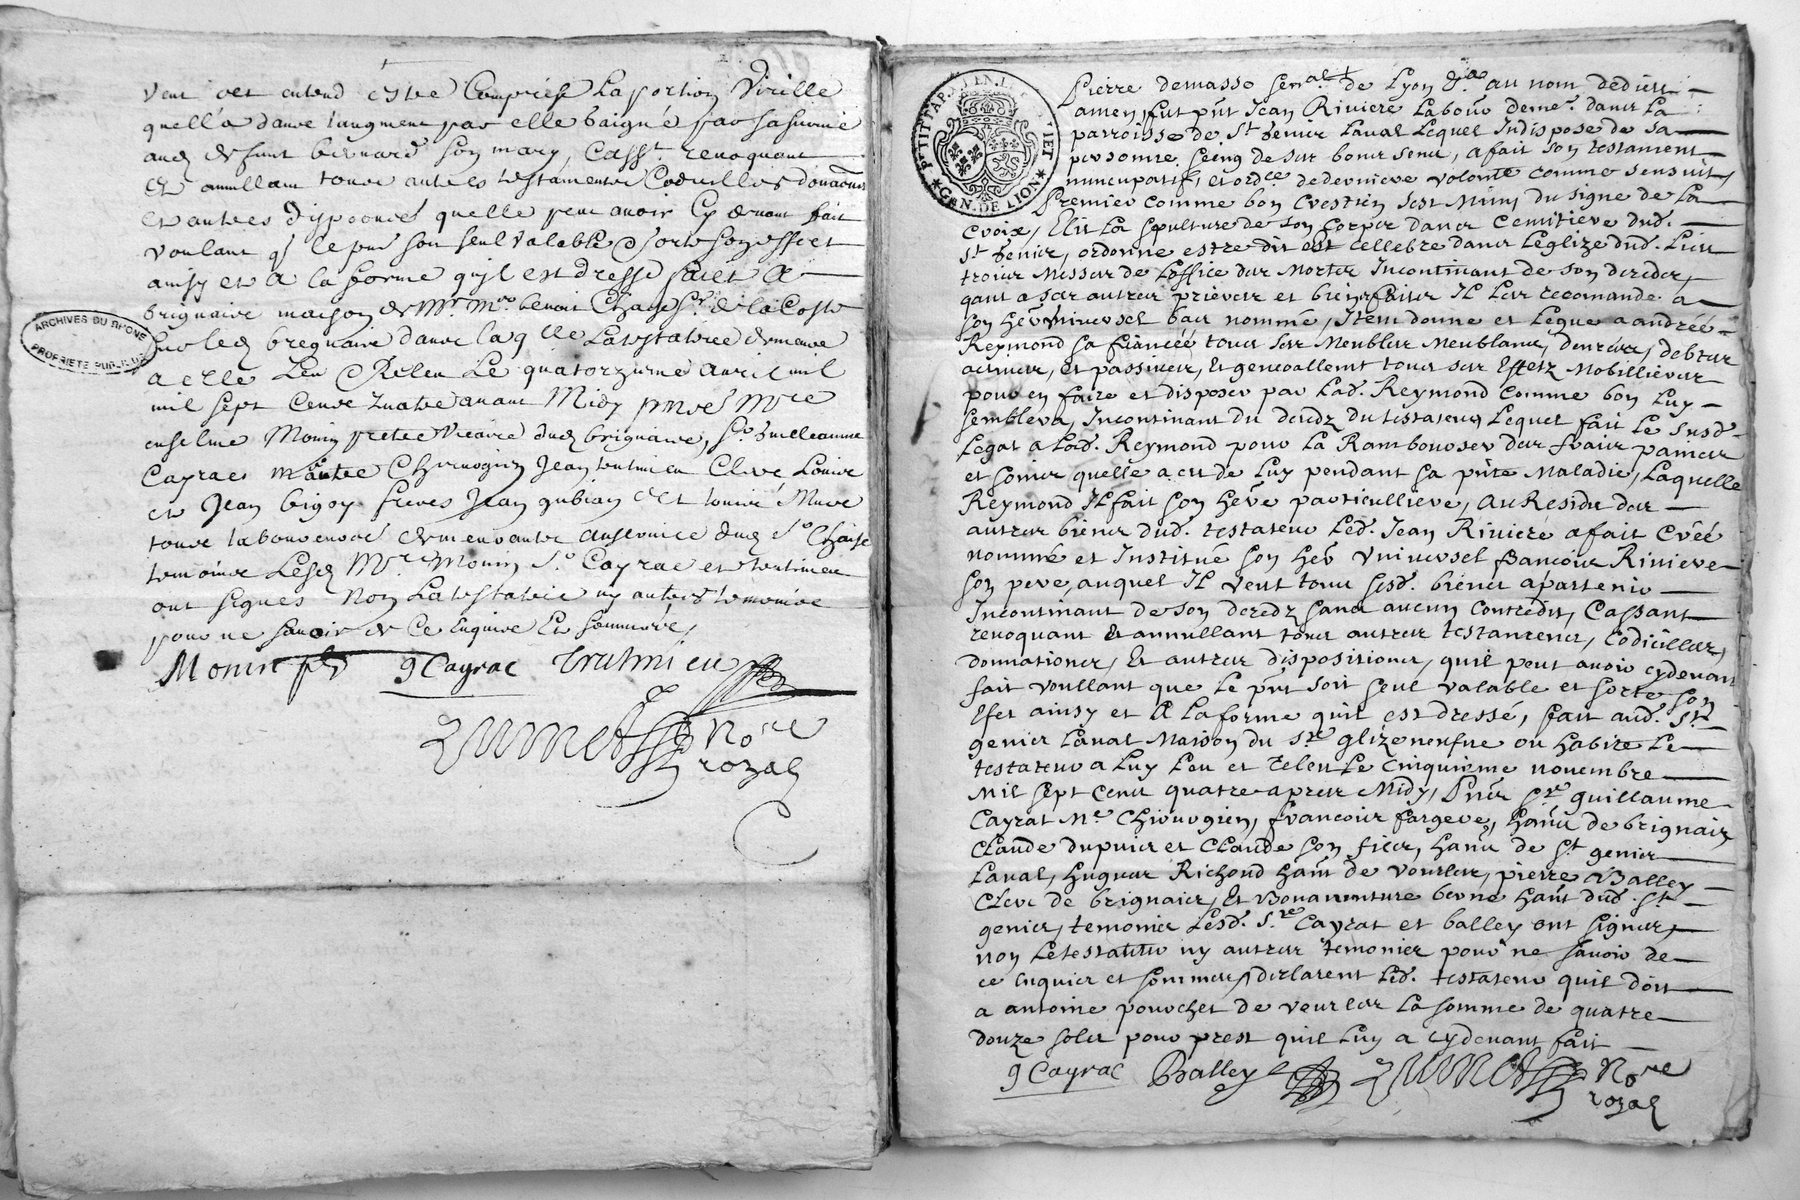 veut et entend estre Comprise La portion Virille
quell'a dans l'augment par elle gaigné par sa survie
aud. deffunt bernard son mary, Cass.t revoquant
et annullant tous autres testaments Codicilles donaôns
et autres dispoônes quelle peut avoir Cy devant fait
voulant q. le pnt soit seul valable & sorte son effect
ainsy et A la forme qu'il est dressé faict A
brignaire maison de Mr. Mre benoit Chaize Sr. de la Coste
aud. brignaire dans laqlle La testatrice demeure
a elle Leu & Releu Le quatorzieme avril mil
mil sept Cents quatre avant Midy pnts Mre
enselme Monin pretre vicaire dud. brignaire, Sr. Guilleaume
Cayrac maitre Chirurgien Jean trutmieu Clerc Louis
et Jean bigoy freres Jean gubian et
tous laboureurs & demeurants au service dud. Sr. Chaize
temoins Lesd. Mre. Monin Sr. Cayrac et trutmieu
ont signés Non La testatrice ny autres temoins
pour ne scavoir de Ce Enquis Et sommés,
Monin ptre gCayrac Trutmieu
No.re
rozal
ARCHIVES DU RHONE
PROPRIETE PUBLIQUE
GEN. DE LION
Pierre demasso Sen.al de Lyon &a au nom de dieu
amen, fut pnt Jean Riviere Labour deme.t dans La
parroisse de St. Genier Laval Lequel Indispose de sa
personne, Seing de ses bons sens, a fait son testament
nuncupatif, et ord.ce de derniere volonte comme sensuit,
Premier comme bon Crestien sest Muny du Signe de La
Croix, Elit La sepulture de son Corps dans Cemitiere dud.
St. Genier, ordonne estre dit et cellebre dans Leglize dud. Lieu
trois Messes de Loffice des Mortes Incontinant de son decedes,
qant a ses autres prieres et bienfaites Il Les recomande a
son her. universel bas nommé, Item donne et Legue a andréé
Reymond sa fiancéé tous ses Meubles Meublans, denrées, debtes
actives, et passives, Et generallemt tous ses Effetz Mobilliers
pour en faire et disposer par Lad. Reymond Comme bon Luy
semblera, Incontinant du decedz du testateur, Lequel fait Le susd.
Legat a Lad. Reymond pour La Rambourser des frais pances
et soins quelle a eu de Luy pendant sa pnte Maladie, Laquelle
Reymond Il fait son here particulliere, Au Residu des
autres biens dud. testateur Led. Jean Riviere a fait Créé
nommé et Institué son her universel francois Riviere
son pere, auquel Il veut tous sesd. biens apartenir
Incontinant de son decedz sans aucun Contredit, Cassant
revoquant & annullant tous autres testamens, Codicilles,
donnations, Et autres dispositions, quil peut avoir cydevant
fait voullant que Le pnt soit seul valable et sorte son
Efet ainsy et A La forme quil est dressé, fait aud. St.
genier Laval Maison du Sre glizeneufue ou habite Le
testateur a Luy Leu et releu Le Cinquieme novembre
Mil sept Cens quatre apres Midy, Pnts Sre guillaume
Cayrat Me Chirurgien, francois fargere, hants de brignais
Claude dupuis et Claude son fils, hants de St genier
Laval, hugues Richond hant de vourles, pierre Balley
Clerc de brignais, Et Bonaventure berne hant dud. St
genier, temoins Lesd. Sre Cayrat et balley ont signes,
non Le testateur ny autres temoins pour ne savoir de
ce Enquis et sommes, declarent Led. testateur quil doit
a antoine pourchet de veurles La somme de quatre
douze soles pour prest quil Luy a cydevant fait
gCayrac Balley No.re
rozal